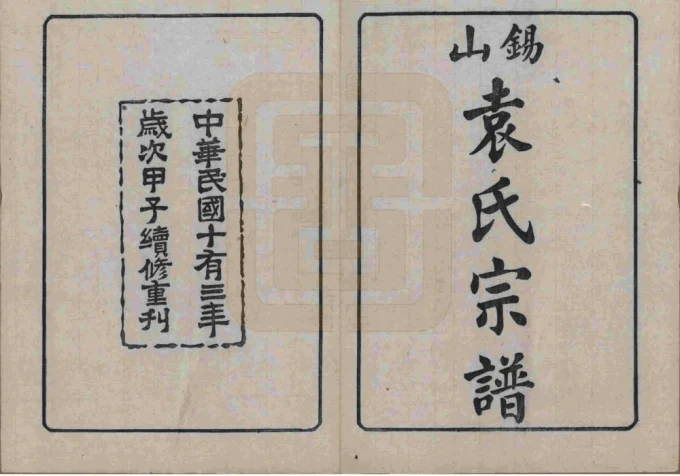 錫山
袁氏宗譜
中華民國十有三年
歲次甲子續修重刊